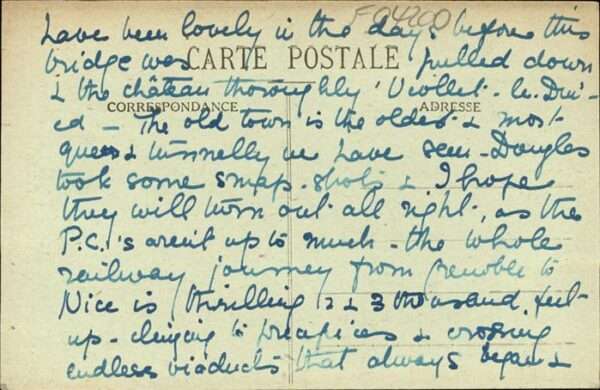 have been lovely in the days before this
F 04200
bridge was pulled down
CARTE POSTALE
& the château thoroughly 'Viollet-le-Duc-
CORRESPONDANCE ADRESSE
ed - The old town is the oldest & most
queer & tunnelly we have seen - Douglas
took some snap-shots & I hope
they will turn out all right, as the
P.C.'s aren't up to much - the whole
railway journey from Grenoble to
Nice is thrilling 2 & 3 thousand feet
up - clinging to precipices & crossing
endless viaducts that always began &